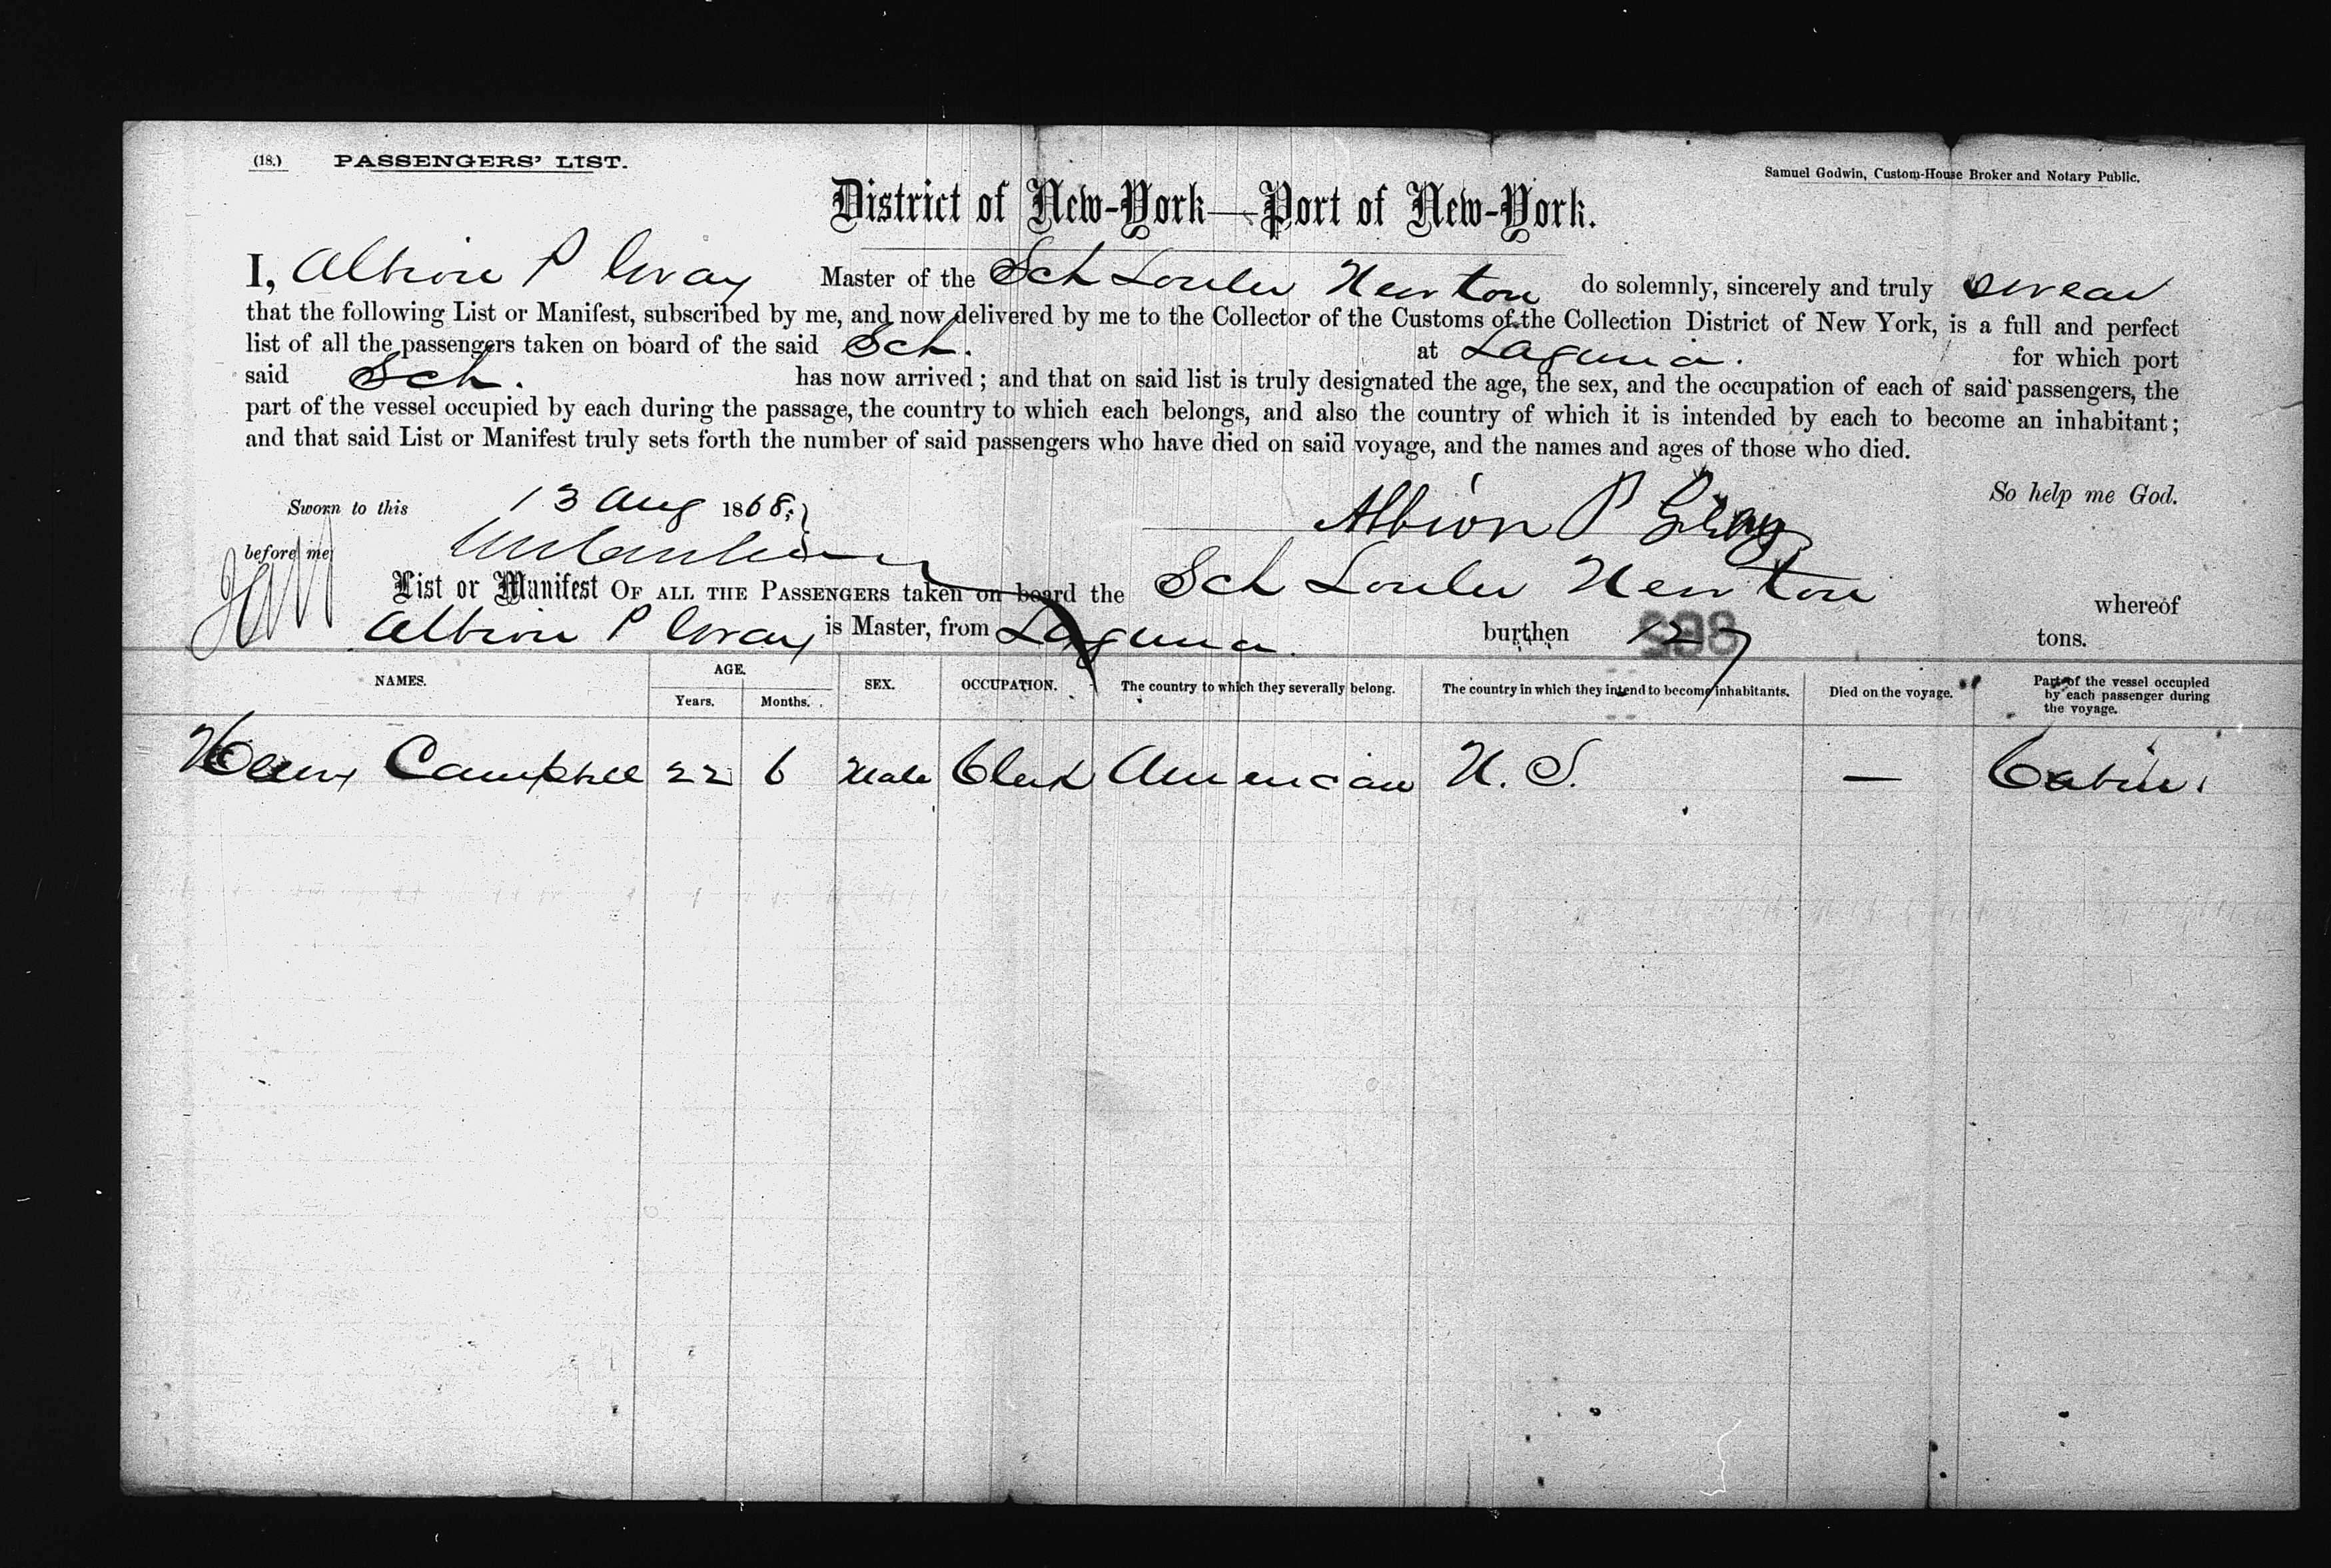 (18.) PASSENGERS' LIST.
Samuel Godwin, Custom-House Broker and Notary Public.
District of New-York—Port of New-York.
I, Albion P Gray Master of the Sch Newton do solemnly, sincerely and truly swear
that the following List or Manifest, subscribed by me, and now delivered by me to the Collector of the Customs of the Collection District of New York, is a full and perfect
list of all the passengers taken on board of the said Sch. at Laguna. for which port
said Sch. has now arrived; and that on said list is truly designated the age, the sex, and the occupation of each of said passengers, the
part of the vessel occupied by each during the passage, the country to which each belongs, and also the country of which it is intended by each to become an inhabitant;
and that said List or Manifest truly sets forth the number of said passengers who have died on said voyage, and the names and ages of those who died.
So help me God.
Sworn to this 13 Aug 1868,
Albion P Gray
before me
List or Manifest OF ALL THE PASSENGERS taken on board the Sch Newton whereof
Albion P Gray is Master, from Laguna. burthen 127 tons.
NAMES. AGE. Years. Months. SEX. OCCUPATION. The country to which they severally belong. The country in which they intend to become inhabitants. Died on the voyage. Part of the vessel occupied by each passenger during the voyage.
Campbell 22 6 Male Clerk American U. S. — Cabin.